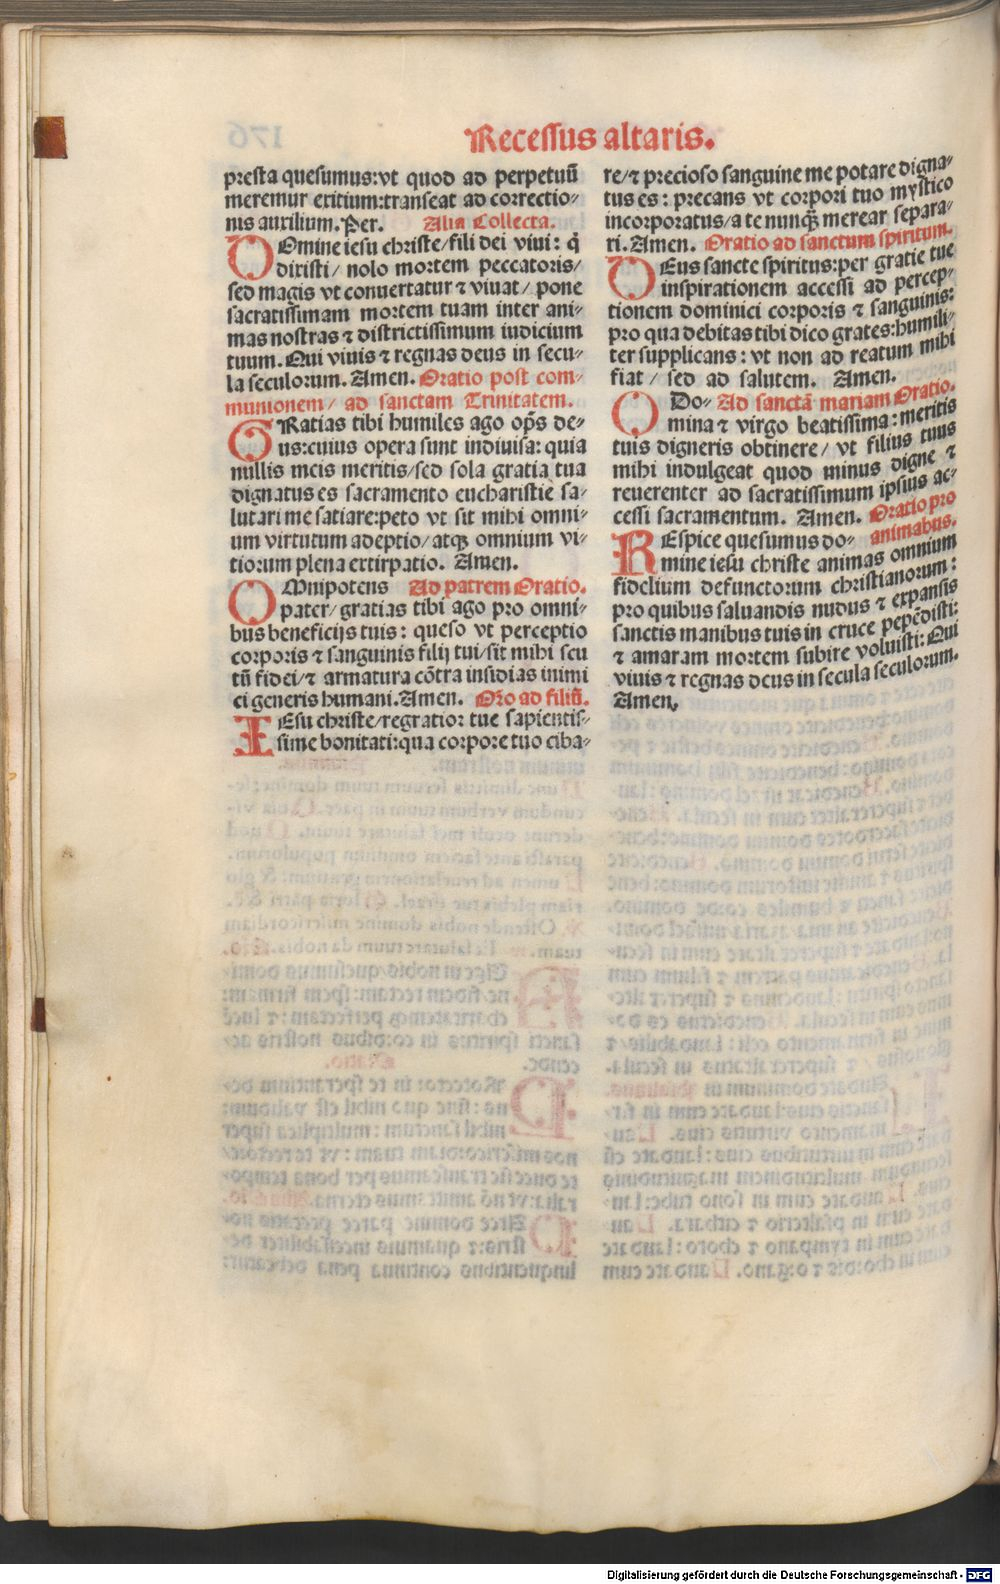 Recessus altaris.
presta quesumus: vt quod ad perpetuū
meremur exitium: transeat ad correctio-
nis auxilium. Per. Alia Collecta.
Domine iesu christe/ fili dei viui: q̇
dixisti/ nolo mortem peccatoris/
sed magis vt conuertatur ⁊ viuat/ pone
sacratissimam mortem tuam inter ani-
mas nostras ⁊ districtissimum iudicium
tuum. Qui viuis ⁊ regnas deus in secu-
la seculorum. Amen. Oratio post com-
munionem/ ad sanctam Trinitatem.
GRatias tibi humiles ago op̄s de-
us: cuius opera sunt indiuisa: quia
nullis meis meritis/ sed sola gratia tua
dignatus es sacramento eucharistie sa-
lutari me satiare: peto vt sit mihi omni-
um virtutum adeptio/ atqꝫ omnium vi-
tiorum plena extirpatio. Amen.
OMnipotens Ad patrem Oratio.
pater/ gratias tibi ago pro omni-
bus beneficijs tuis: queso vt perceptio
corporis ⁊ sanguinis filij tui/ sit mihi scu
tū fidei/ ⁊ armatura cōtra insidias inimi
ci generis humani. Amen. Orō ad filiū.
IEsu christe/ regratior tue sapientis-
sime bonitati: qua corpore tuo ciba-
re/ ⁊ precioso sanguine me potare digna-
tus es: precans vt corpori tuo mystico
incorporatus/ a te nunqꝫ merear separa-
ri. Amen. Oratio ad sanctum spiritum.
DEus sancte spiritus: per gratie tue
inspirationem accessi ad percep-
tionem dominici corporis ⁊ sanguinis:
pro qua debitas tibi dico grates: humili-
ter supplicans: vt non ad reatum mihi
fiat/ sed ad salutem. Amen.
O Do- Ad sanctā mariam Oratio.
mina ⁊ virgo beatissima: meritis
tuis digneris obtinere/ vt filius tuus
mihi indulgeat quod minus digne ⁊
reuerenter ad sacratissimum ipsius ac-
cessi sacramentum. Amen. Oratio pro
REspice quesumus do- animabus.
mine iesu christe animas omnium
fidelium defunctorum christianorum:
pro quibus saluandis nudus ⁊ expansis
sanctis manibus tuis in cruce pepēdisti:
⁊ amaram mortem subire voluisti: Qui
viuis ⁊ regnas deus in secula seculorum.
Amen.
Digitalisierung gefördert durch die Deutsche Forschungsgemeinschaft - DFG